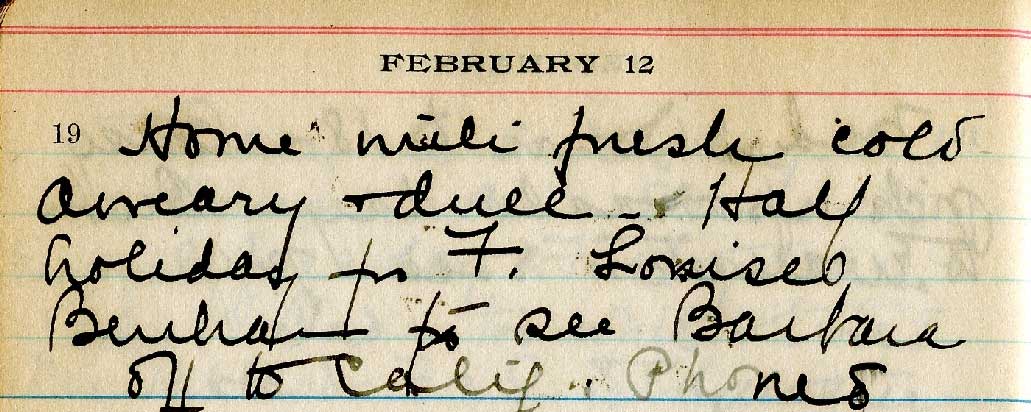 FEBRUARY 12
19 Home with fresh cold
aweary + dull - Half
holiday for F. Louise
Benham to see Barbara
off to Calif. Phoned